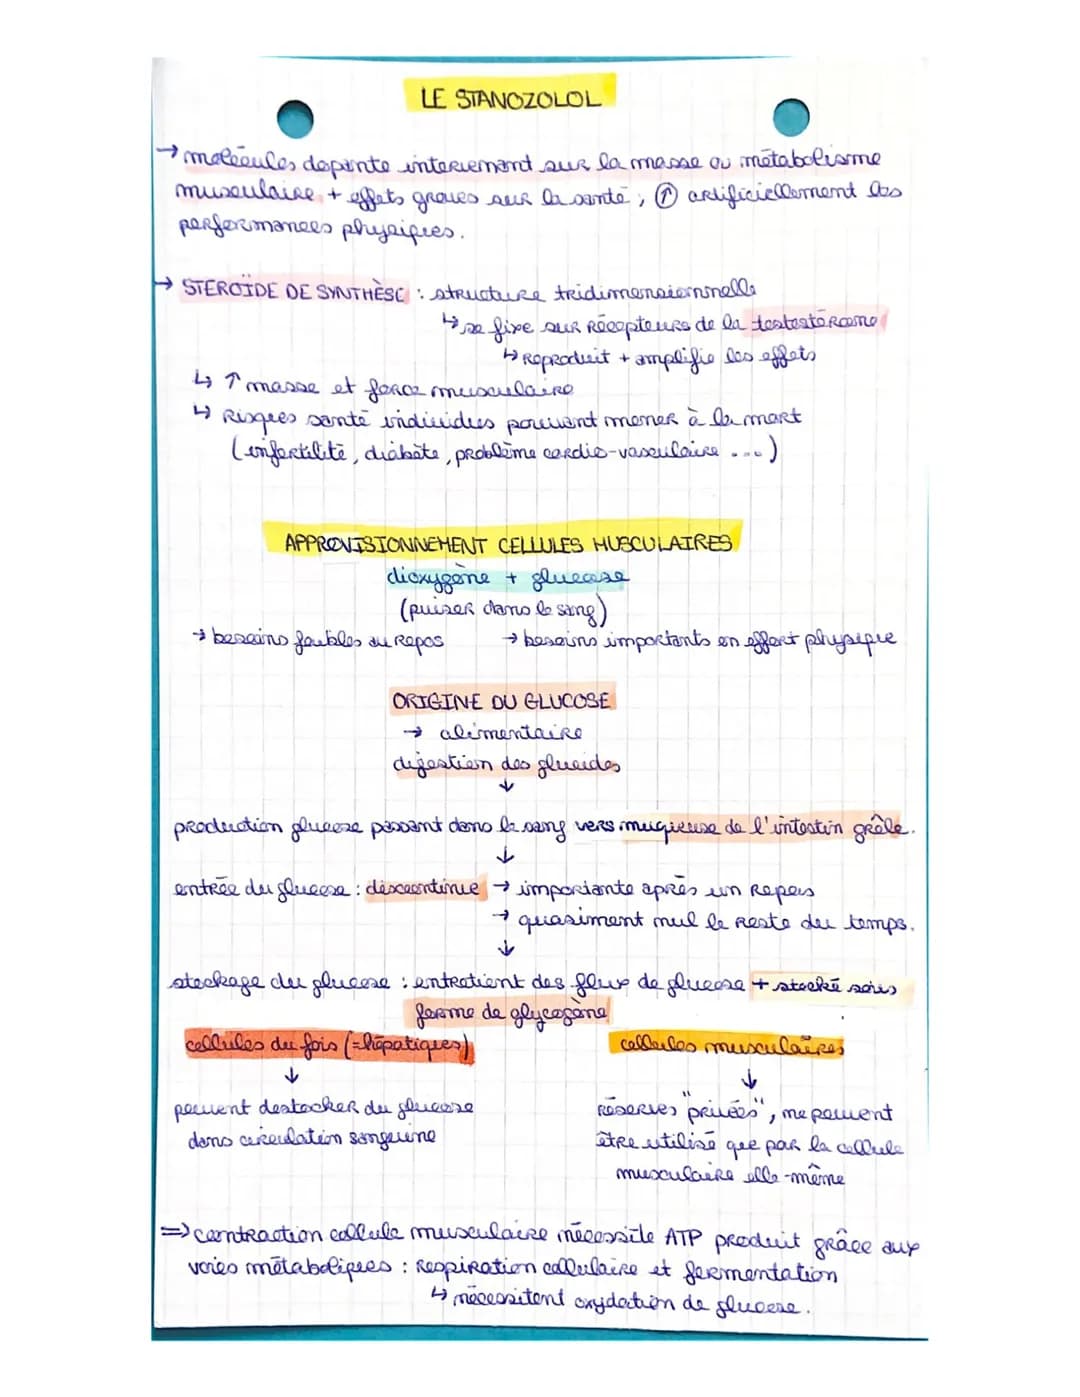 LE STANOZOLOL
→ molécules dopante intervenant sur la masse ou métabolisme
musculaire + effets graves sur la santé ; ↑ artificiellement les
performances physiques.
→ STEROÏDE DE SYNTHÈSE : structure tridimensionnelle
↳ se fixe sur récepteurs de la testostérone
↳ Reproduit + amplifie les effets
↳ ↑ masse et force musculaire
↳ Risques santé individus pouvant mener à la mort
(infertilité, diabète, problème cardio-vasculaire ...)
APPROVISIONNEMENT CELLULES MUSCULAIRES
dioxygène + glucose
(puiser dans le sang)
→ besoins faibles au repos → besoins importants en effort physique
ORIGINE DU GLUCOSE
→ alimentaire
digestion des glucides
↓
production glucose passant dans le sang vers muqueuse de l'intestin grêle.
↓
entrée du glucose : discontinue → importante après un repas
→ quasiment nul le reste du temps.
↓
stockage du glucose : entretient des flux de glucose + stocké sous
forme de glycogène
cellules du fois (=hépatiques) cellules musculaires
↓ ↓
peuvent destocker du glucose réserves "privées", ne peuvent
dans circulation sanguine être utilisé que par la cellule
musculaire elle-même
⇒ contraction cellule musculaire nécessite ATP produit grâce aux
voies métaboliques : Respiration cellulaire et fermentation
↳ nécessitent oxydation de glucose.